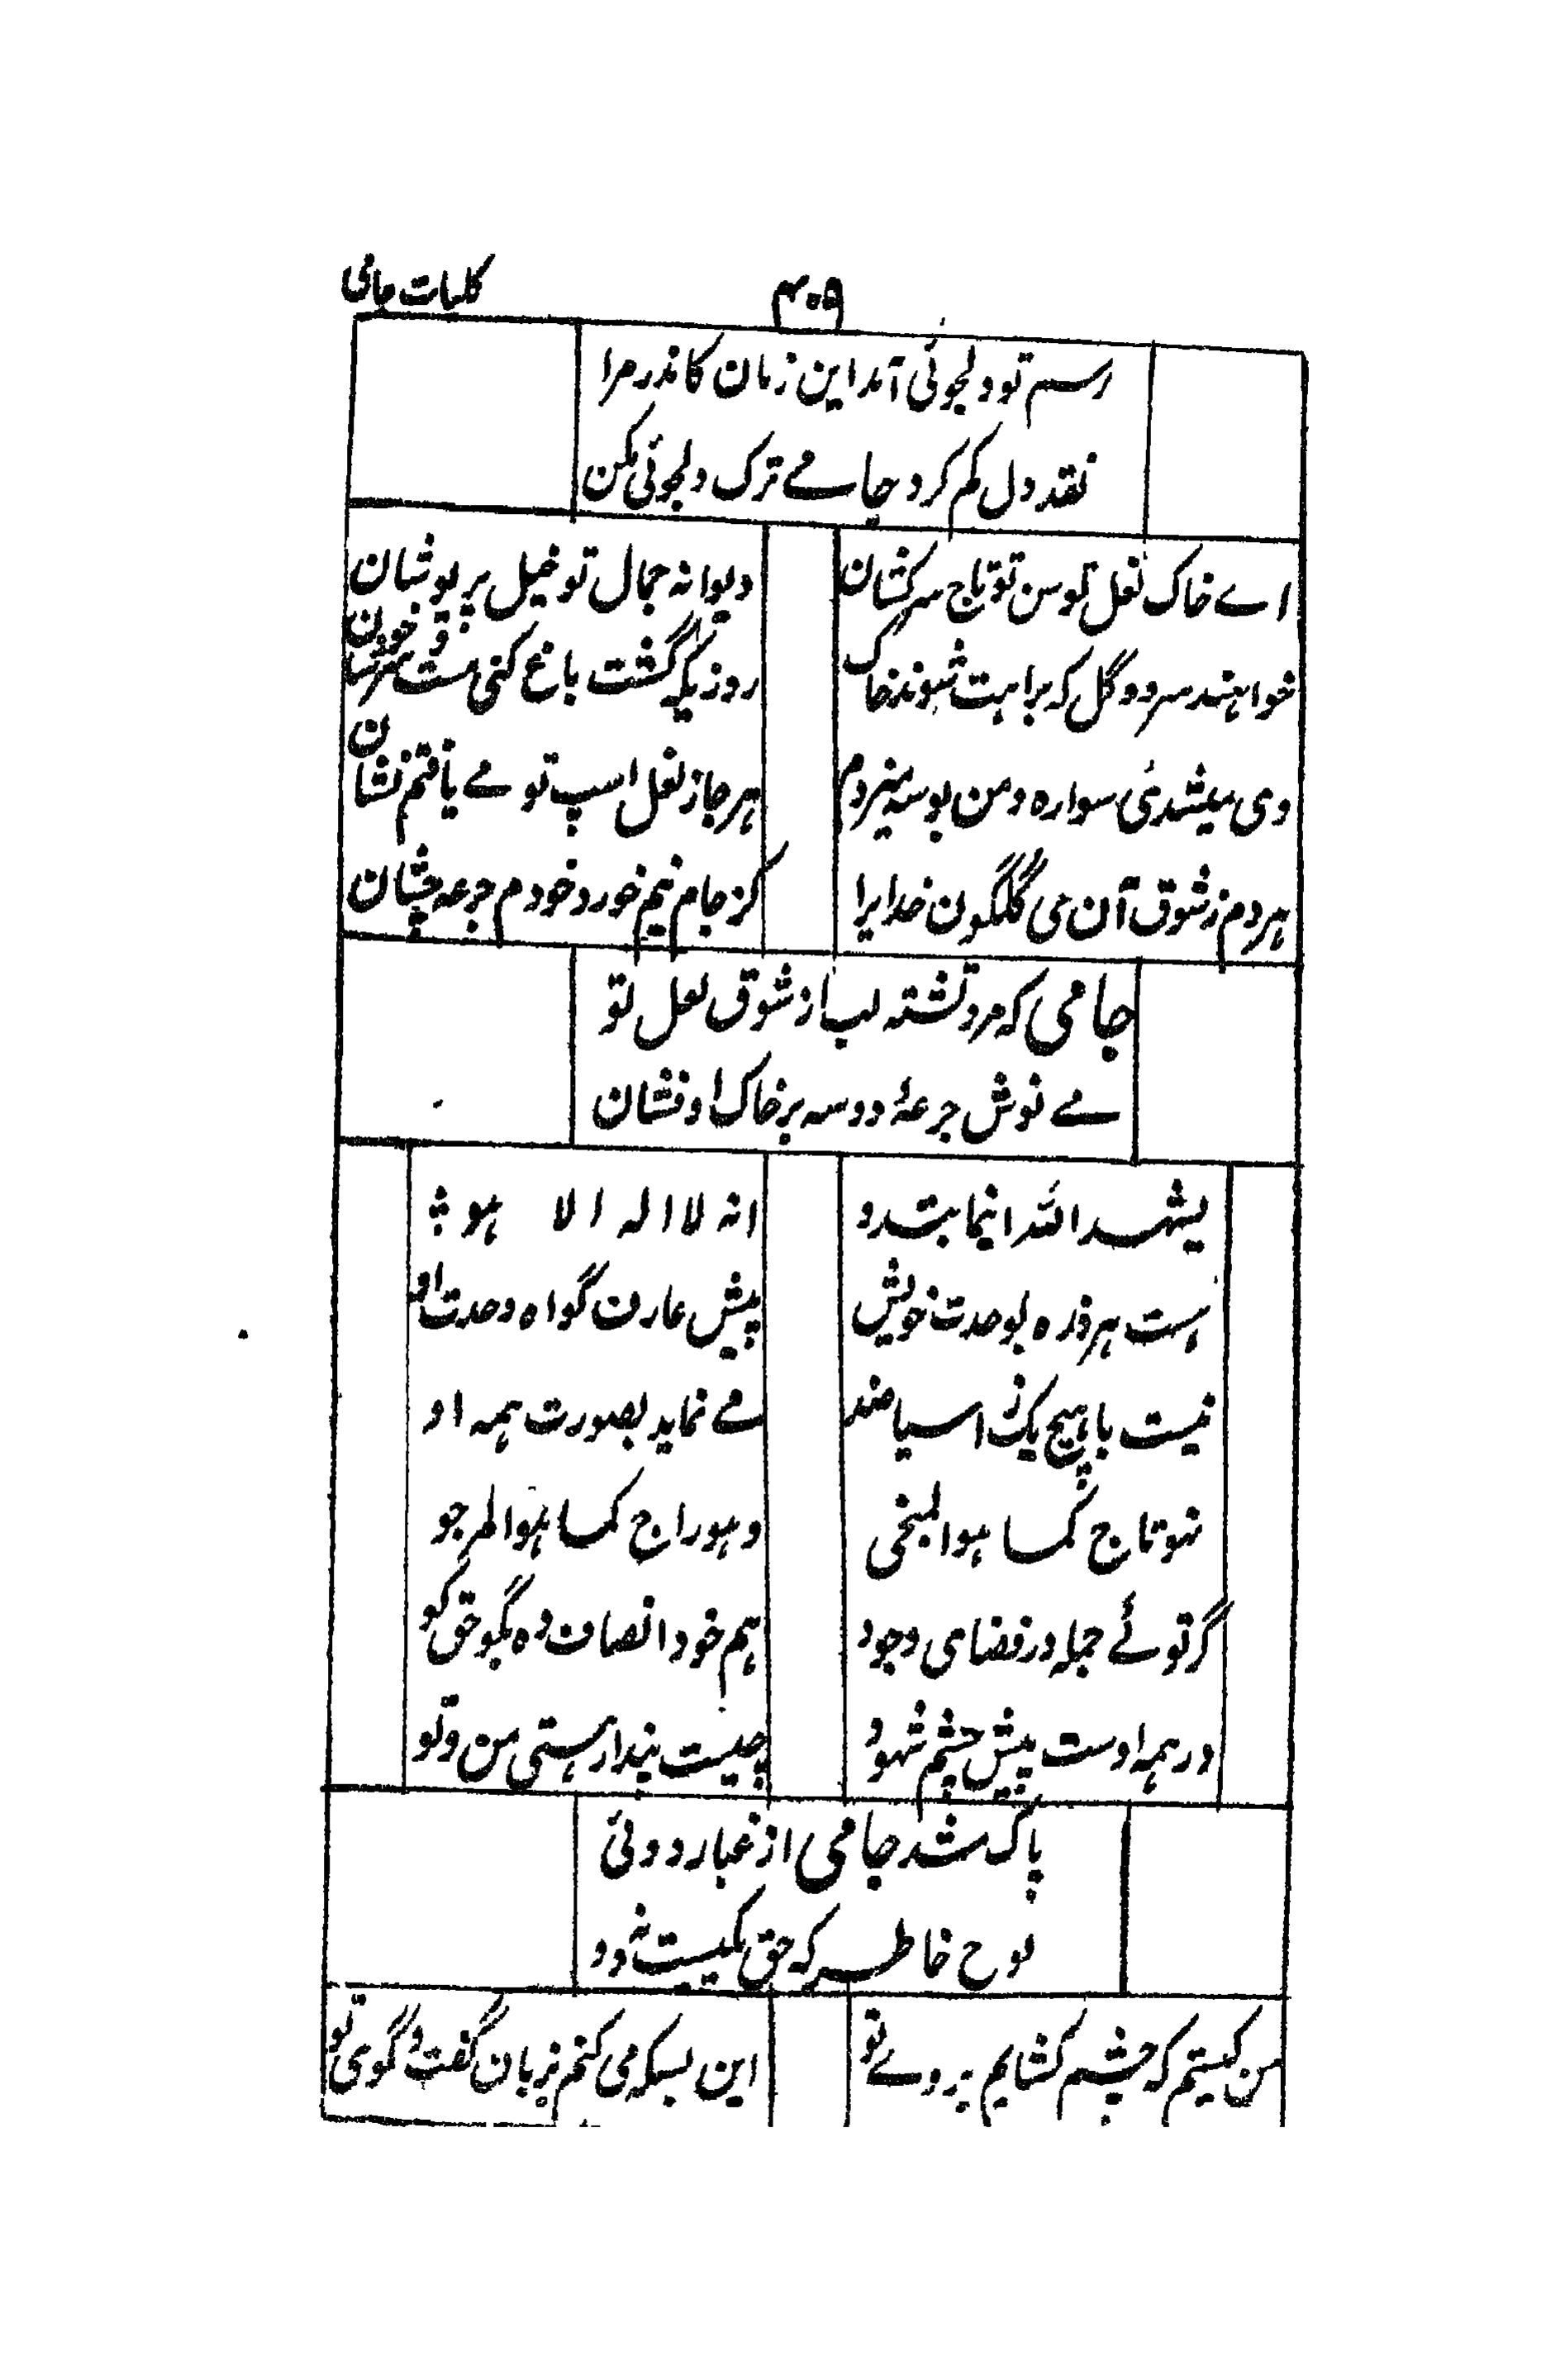 کلیات جامی
۴۰۹
رسم تو دلجوئی آمد این زمان کاندر مرا
نقد دل کم کرد جامے ترک دلجوئی مکن
اے خاک نعل توسن تو تاج سرکشان
دیوانه جمال تو خیل پریوشان
خواهند سرو و گل که براهت شوند خاک
روزیکه گشت باغ کنی مست
دی میشدی سواره و من بوسه میزدم
هر جا ز نعل اسپ تو مے یافتم نشان
هر دم ز شوق آن می گلگون خدایرا
کز جام نیم خورد خودم جرعه چشان
جامی که مرد تشنه لب از شوق لعل تو
مے نوش جرعهٔ دو سه بر خاک او فشان
یشهد الله اینما یبدو
انه لا اله الا هو
هست هر ذره بوحدت خویش
پیش عارف گواه وحدت او
نیست با هیچ یک ز اسیا ضد
مے نماید بصورت همه او
هو تاج کما هو المنجی
وهو راج کما هو المرجو
گر توئے جمله در فضای وجود
هم خود انصاف ده بگو حق کو
در همه اوست پیش چشم شهود
چیست پندار هستی من و تو
پاک شد جامی از غبار دوئی
لوح خاطر که حق یکیست نه دو
من کیستم که چشم کشایم بروے تو
این بسکه می کنم بزبان گفت و گوی تو